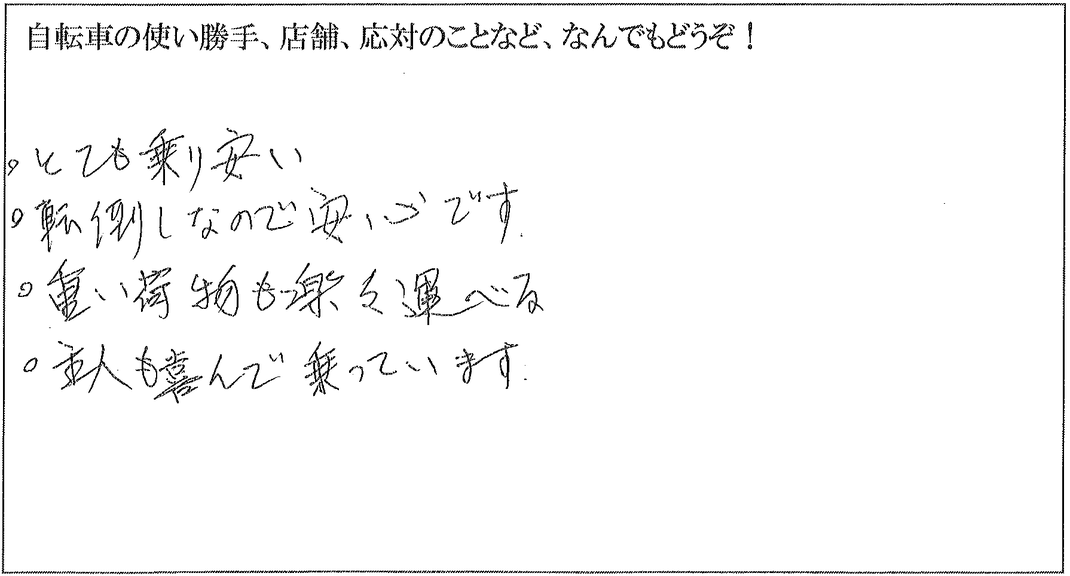 自転車の使い勝手、店舗、応対のことなど、なんでもどうぞ！
○とても乗り安い
○転倒しなので安心です.
○重い荷物も楽々運べる
○主人も喜んで乗っています.